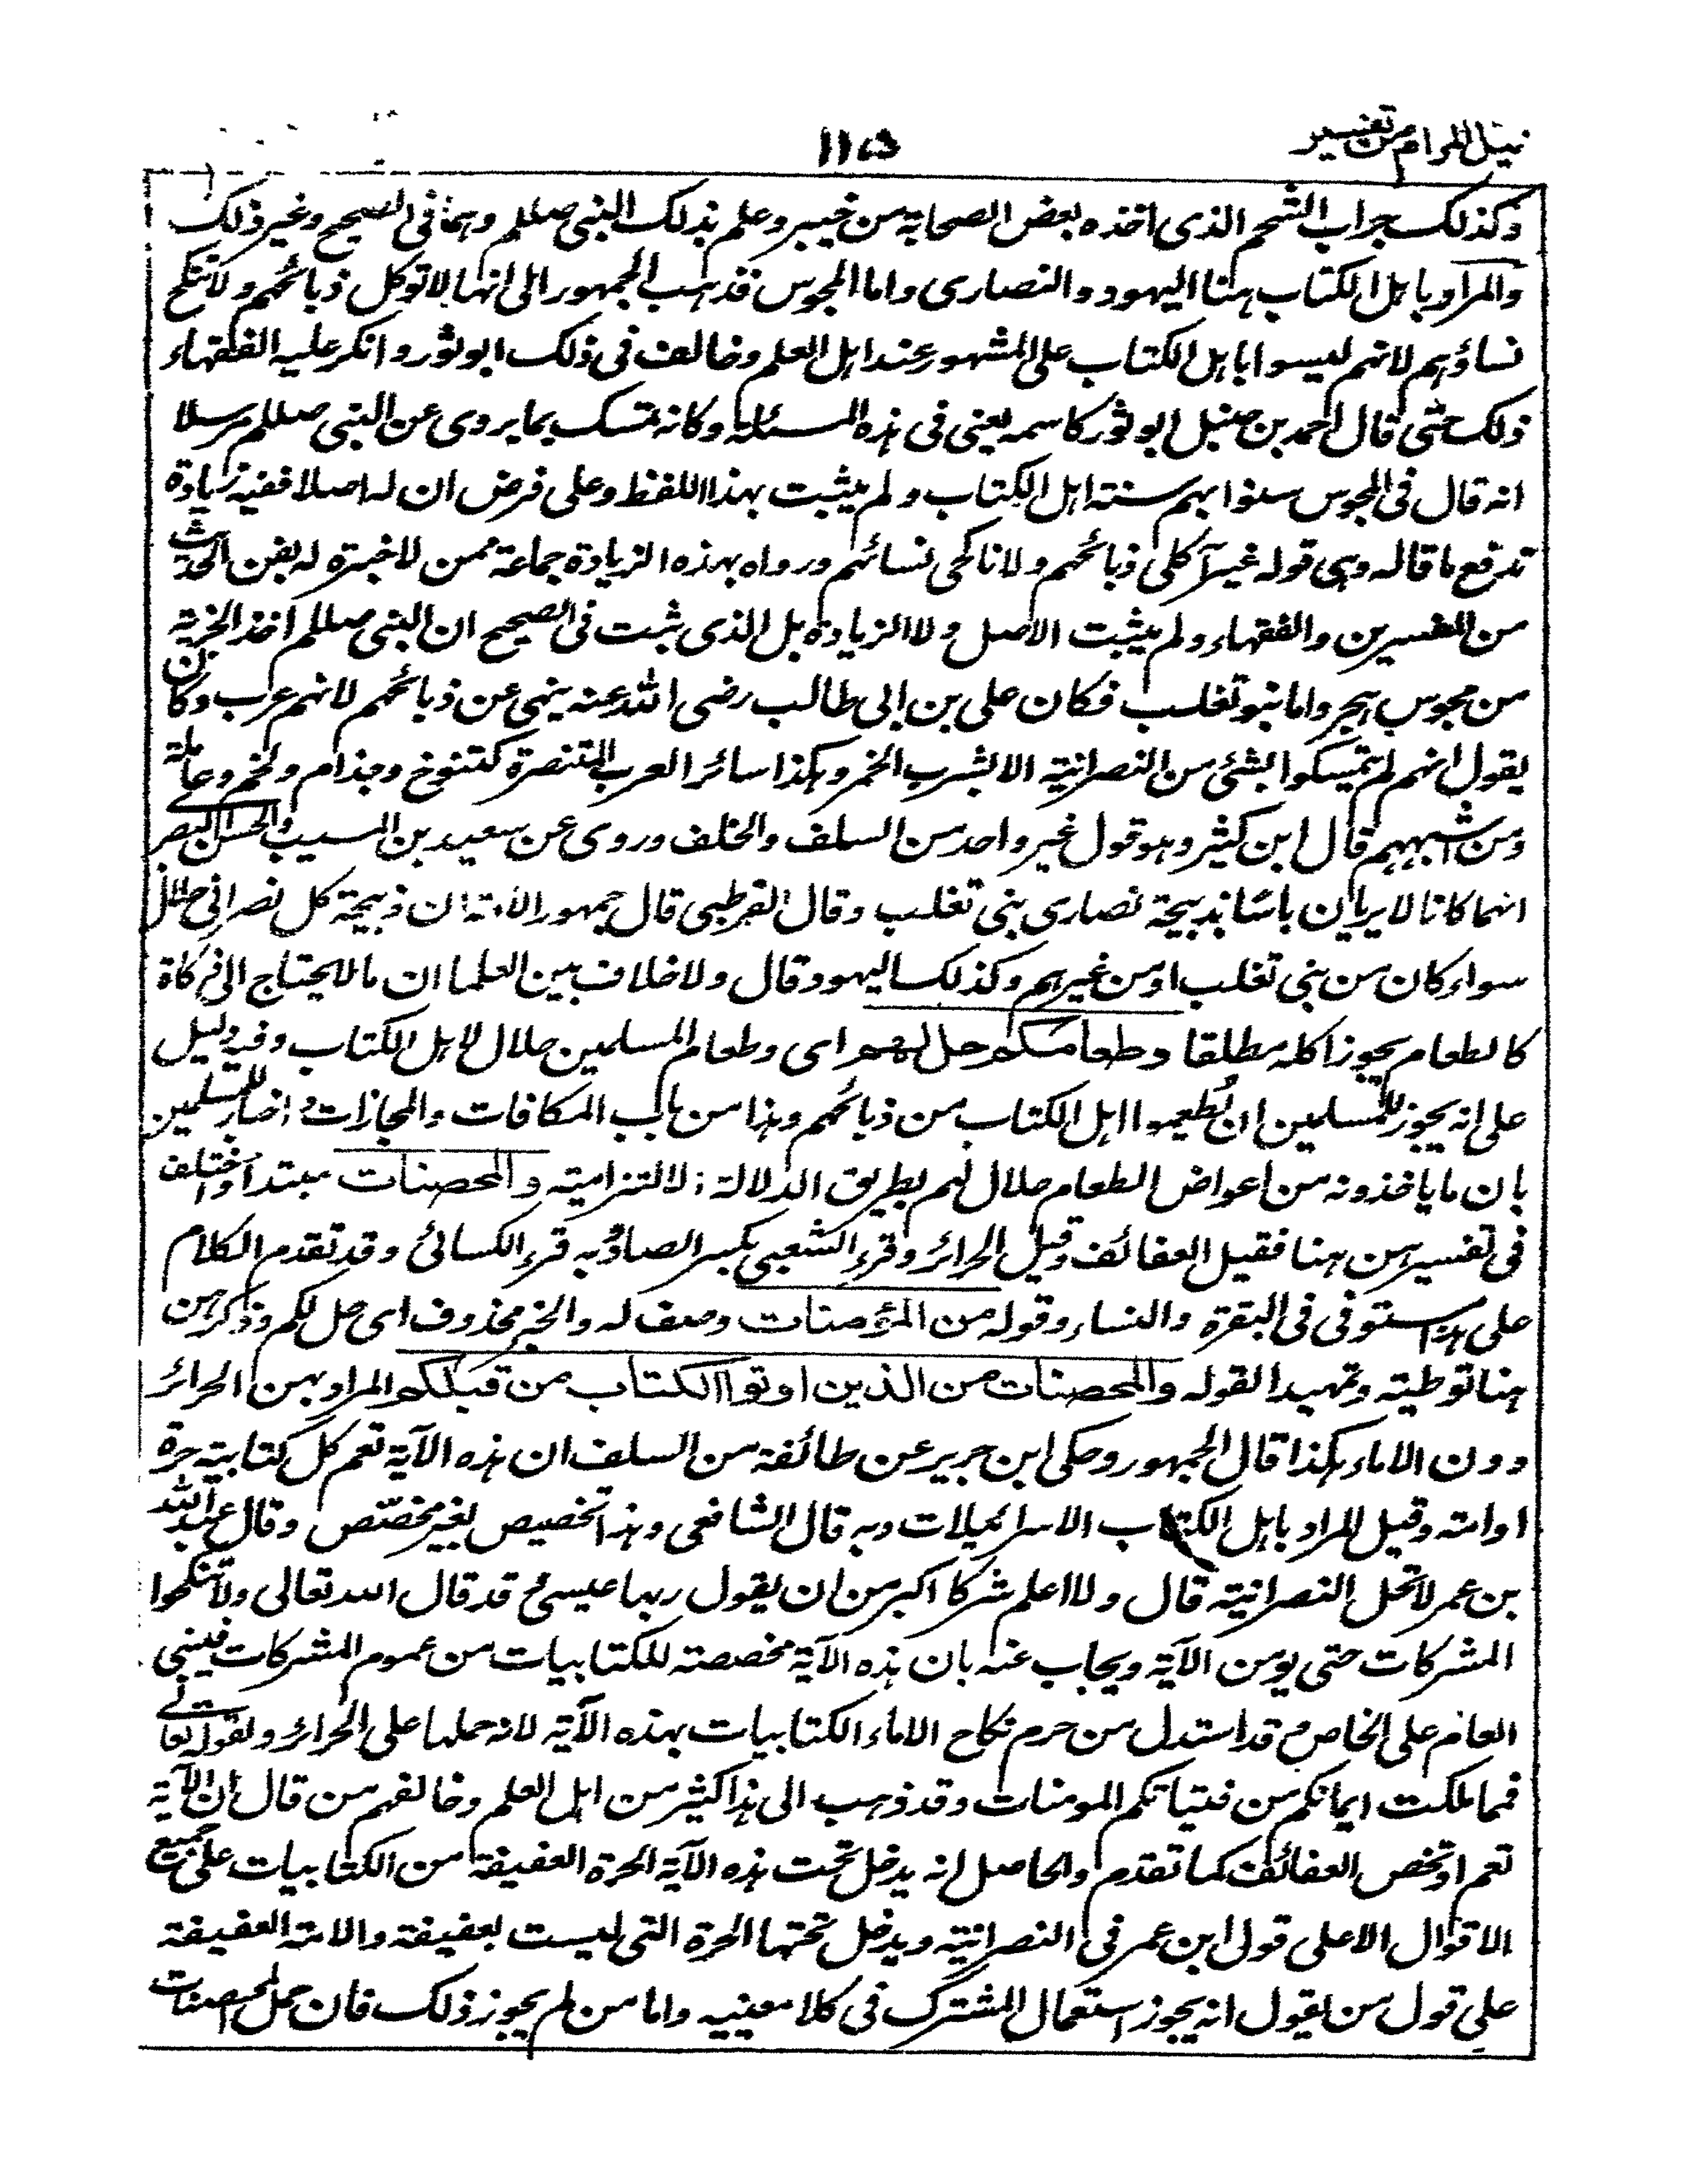 نيل المرام من تفسير
١١٥
وكذلك جراب الشحم الذى اخذه بعض الصحابة من خيبر وعلم بذلك النبى صللم وهما فى الصحيح وغير ذلك
والمراد باهل الكتاب هنا اليهود والنصارى واما المجوس فذهب الجمهور الى انها لا توكل ذبائحهم ولا تنكح
نساؤهم لانهم ليسوا باهل الكتاب على المشهور عند اهل العلم وخالف فى ذلك ابو ثور وانكر عليه الفقهاء
ذلك حتى قال احمد بن حنبل ابو ثور كاسمه يعنى فى هذه المسئلة وكانه تمسك بما يروى عن النبى صللم مرسلا
انه قال فى المجوس سنوا بهم سنة اهل الكتاب ولم يثبت بهذا اللفظ وعلى فرض ان له اصلا ففيه زيادة
تدفع ما قاله وهى قوله غير آكلى ذبائحهم ولا ناكحى نسائهم ورواه بهذه الزيادة جماعة ممن لا خبرة له بفن الحديث
من المفسرين والفقهاء ولم يثبت الاصل ولا الزيادة بل الذى ثبت فى الصحيح ان النبى صللم اخذ الجزية
من مجوس هجر واما بنو تغلب فكان على بن ابى طالب رضى الله عنه ينهى عن ذبائحهم لانهم عرب وكان
يقول انهم لم يتمسكوا بشئ من النصرانية الا بشرب الخمر وهكذا سائر العرب المتنصرة كتنوخ وجذام ولخم وعاملة
ومن اشبههم قال ابن كثير وهو قول غير واحد من السلف والخلف وروى عن سعيد بن المسيب والحسن البصرى
انهما كانا لا يريان باسا بذبيحة نصارى بنى تغلب وقال القرطبى قال جمهور الامة ان ذبيحة كل نصرانى حلال
سواء كان من بنى تغلب او من غيرهم وكذلك اليهود قال ولا خلاف بين العلما ان ما لا يحتاج الى ذكاة
كالطعام يجوز اكله مطلقا وطعامكم حل لهم اى وطعام المسلمين حلال لاهل الكتاب وفيه دليل
على انه يجوز للمسلمين ان يُطعموا اهل الكتاب من ذبائحهم وهذا من باب المكافات والمجازات واخبار للمسلمين
بان ما ياخذونه من اعواض الطعام حلال لهم بطريق الدلالة الالتزامية والمحصنات مبتدأ واختلف
فى تفسيرهن هنا فقيل العفائف وقيل الحرائر وقرء الشعبى بكسر الصاد وبه قرء الكسائى وقد تقدم الكلام
على هذا مستوفى فى البقرة والنساء وقوله من المؤمنات وصف له والخبر محذوف اى حل لكم وذكرهن
هنا توطية وتمهيدا لقوله والمحصنات من الذين اوتوا الكتاب من قبلكم المراد بهن الحرائر
دون الاماء هكذا قال الجمهور وحكى ابن جرير عن طائفة من السلف ان هذه الآية تعم كل كتابية حرة
او امة وقيل المراد باهل الكتاب الاسرائيلات وبه قال الشافعى وهذا تخصيص بغير مخصّص وقال عبد الله
بن عمر لا تحل النصرانية قال ولا اعلم شركا اكبر من ان يقول ربها عيسىٰ وقد قال الله تعالى ولا تنكحوا
المشركات حتى يومن الآية ويجاب عنه بان هذه الآية مخصصة للكتابيات من عموم المشركات فيبنى
العام على الخاص وقد استدل من حرم نكاح الاماء الكتابيات بهذه الآية لانه حملها على الحرائر ولقوله تعالى
فمما ملكت ايمانكم من فتياتكم المومنات وقد ذهب الى هذا كثير من اهل العلم وخالفهم من قال ان الآية
تعم او تخص العفائف كما تقدم والحاصل انه يدخل تحت هذه الآية الحرة العفيفة من الكتابيات على جميع
الاقوال الا على قول ابن عمر فى النصرانية ويدخل تحتها الحرة التى ليست بعفيفة والامة العفيفة
على قول من يقول انه يجوز استعمال المشترك فى كلا معنييه واما من لم يجوز ذلك فان حمل المحصنات